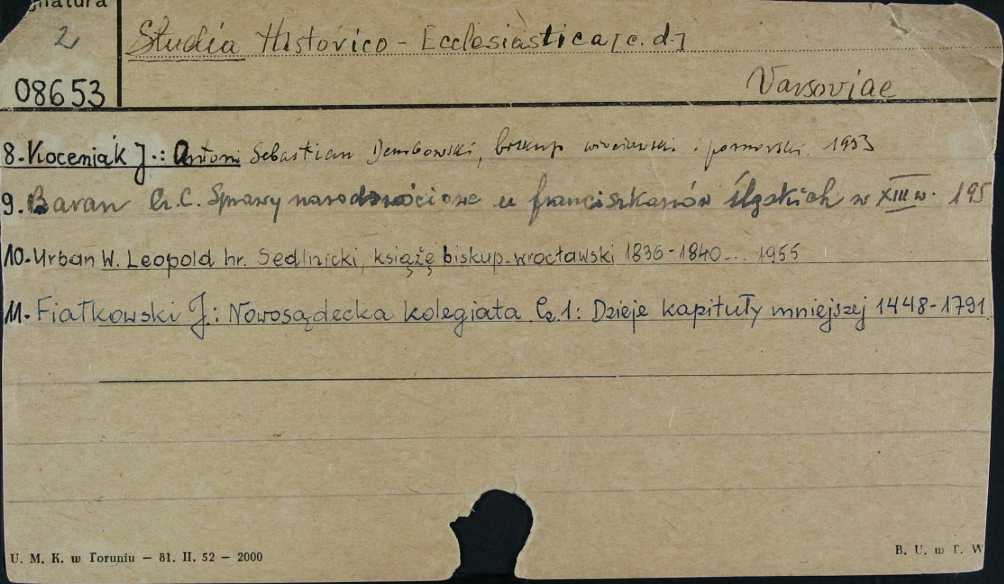 gnatura
2
Studia Historico - Ecclesiastica [c. d.]
08653
Varsoviae
8. Koceniak J.: Antoni Sebastian Dembowski, biskup pomorski. 1953
9. Baran C. Sprawy narodowościowe u franciszkanów śląskich w XIII w. 195
10. Urban W. Leopold hr. Sedlnicki, książę biskup wrocławski 1836-1840... 1955
11. Fiałkowski J.: Nowosądecka kolegiata Cz. 1: Dzieje kapituły mniejszej 1448-1791
U. M. K. w Toruniu — 81. II. 52 — 2000
B. U. w T. W